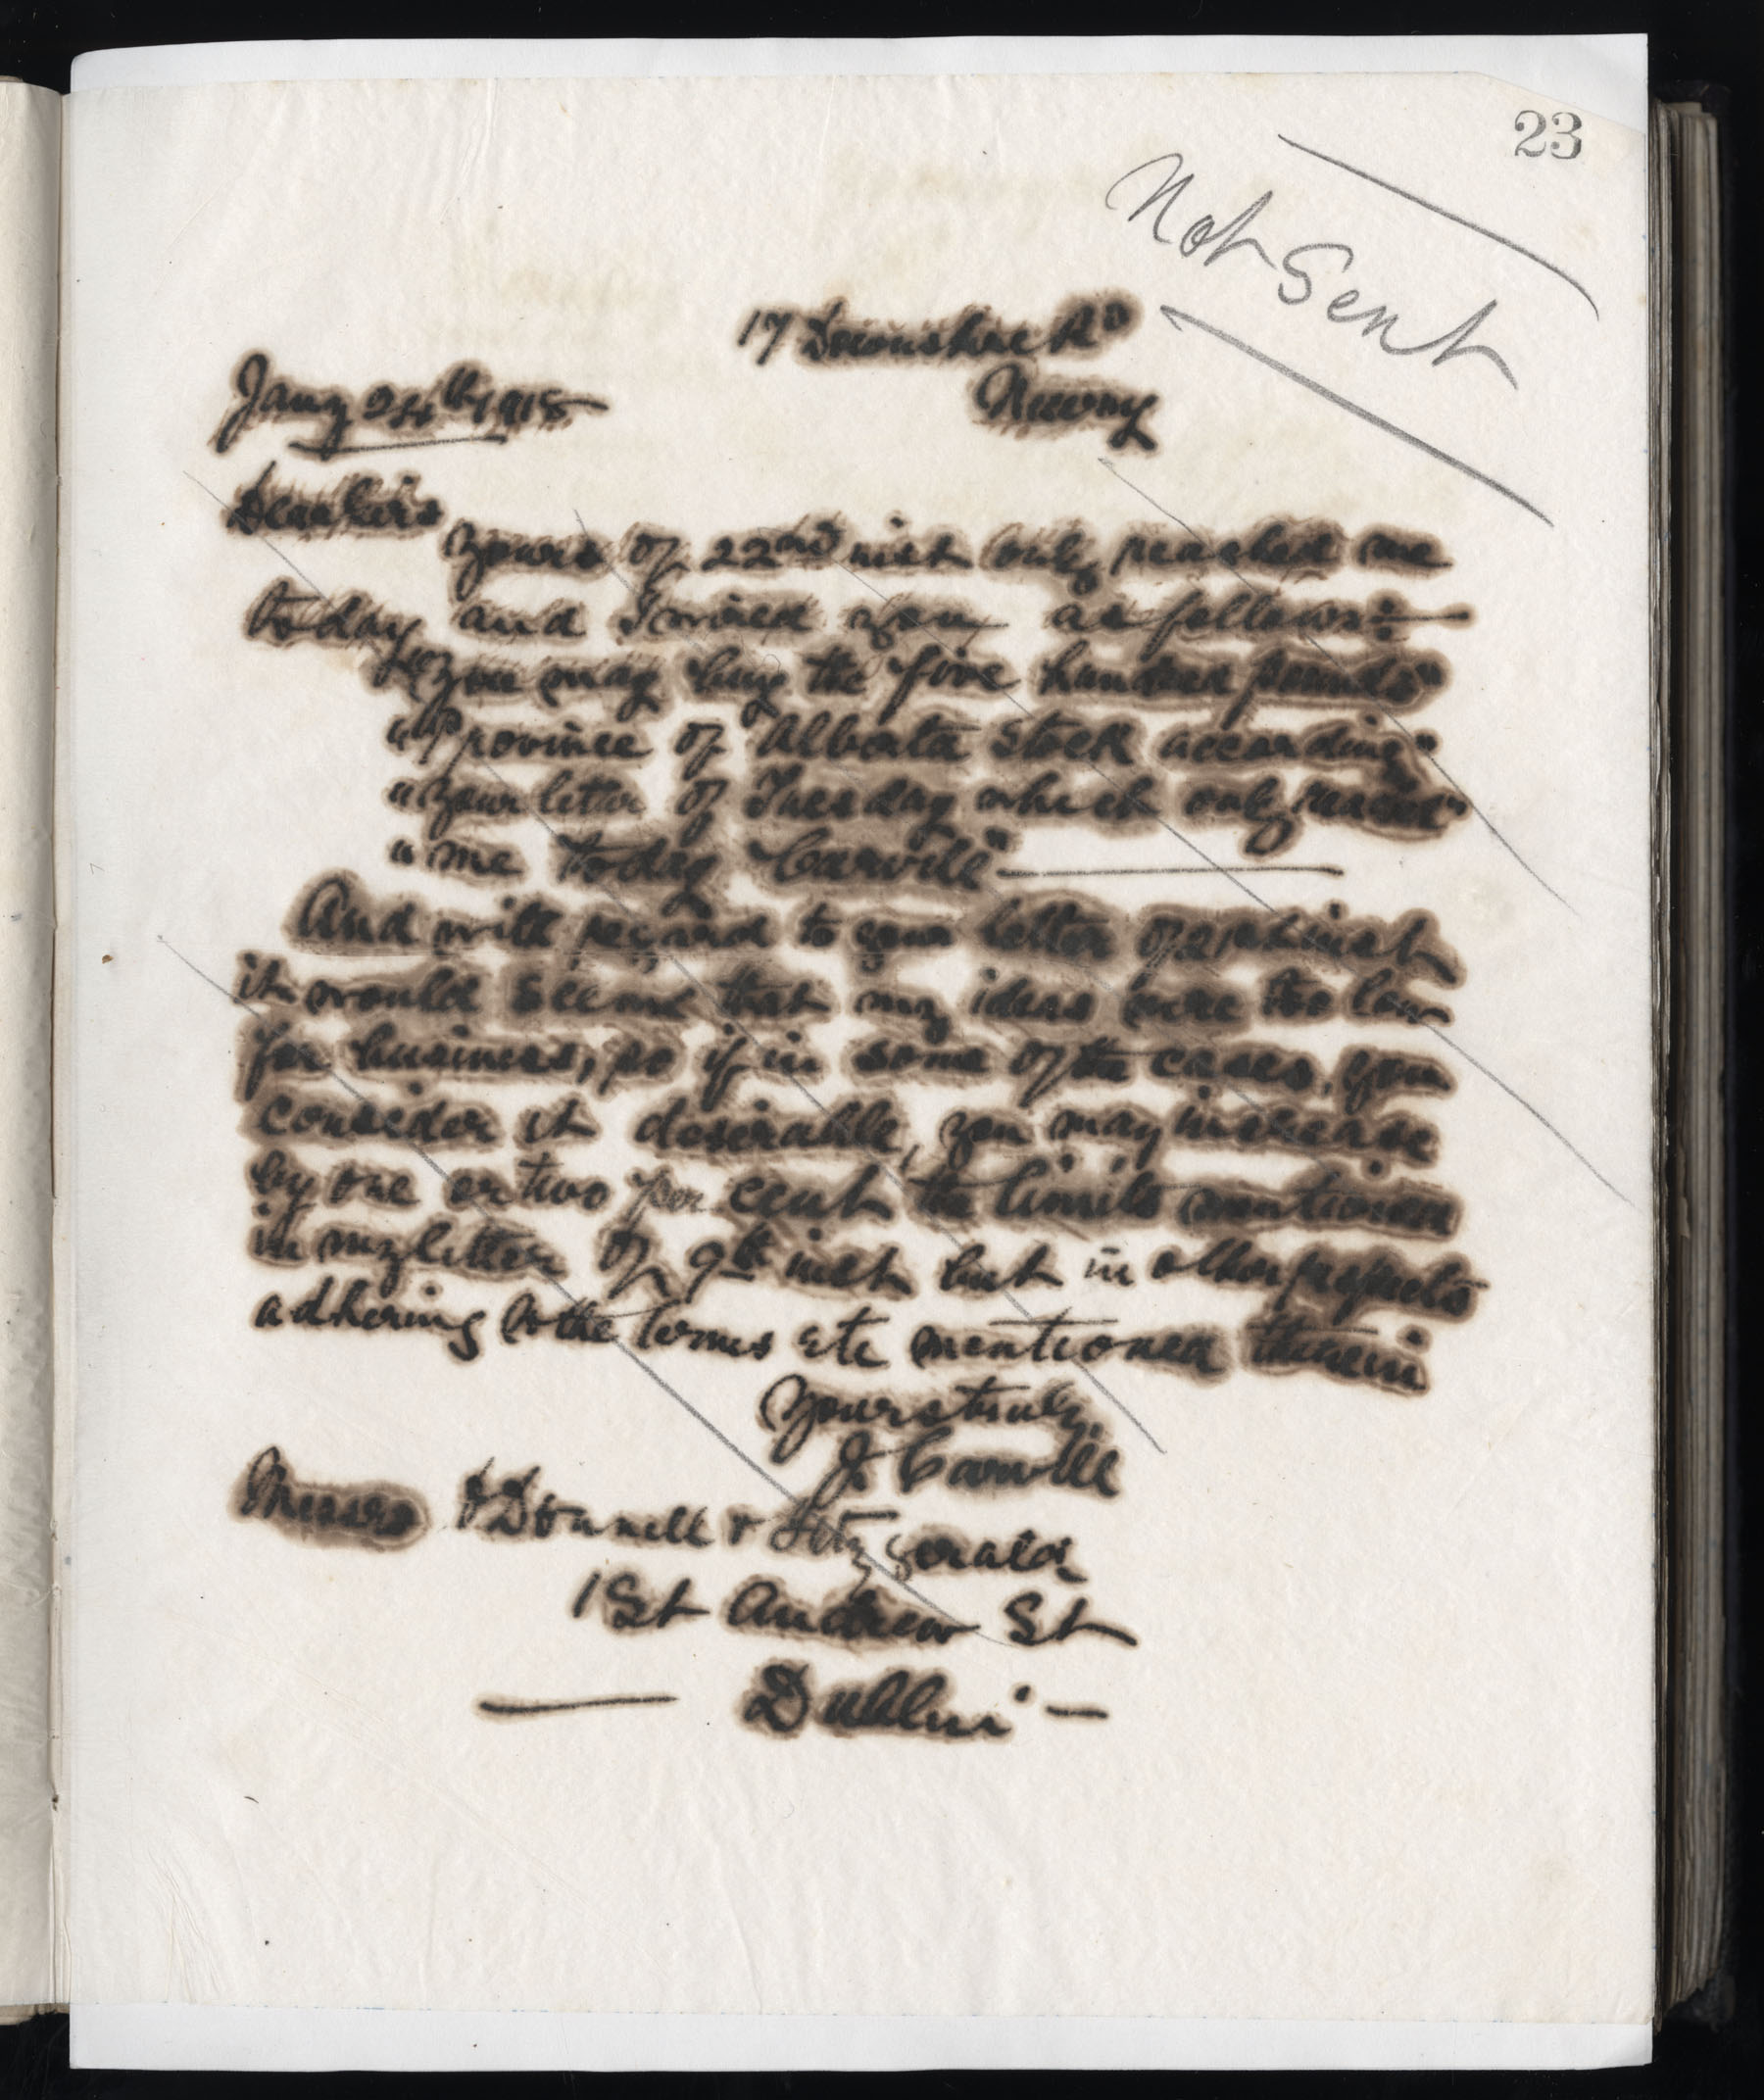 23
Not Sent
17 Devonshire Rd
Newry
Jany 24th 1918
Dear Sirs
Yours of 22nd inst only reached me
today and I wired you as follows:—
"You may buy the five hundred pounds"
"Province of Alberta Stock according"
"your letter of Tuesday which only reached"
"me today Carvill"
And with regard to your letter of 21st inst
it would seem that my ideas were too low
for business, so if in some of the cases, you
consider it desirable, you may increase
by one or two per cent the limits mentioned
in my letter of 9th inst but in other respects
adhering to the terms etc mentioned therein
Yours truly,
J. Carvill
Messrs O'Donnell & Fitzgerald
1 St Andrew St
— Dublin —